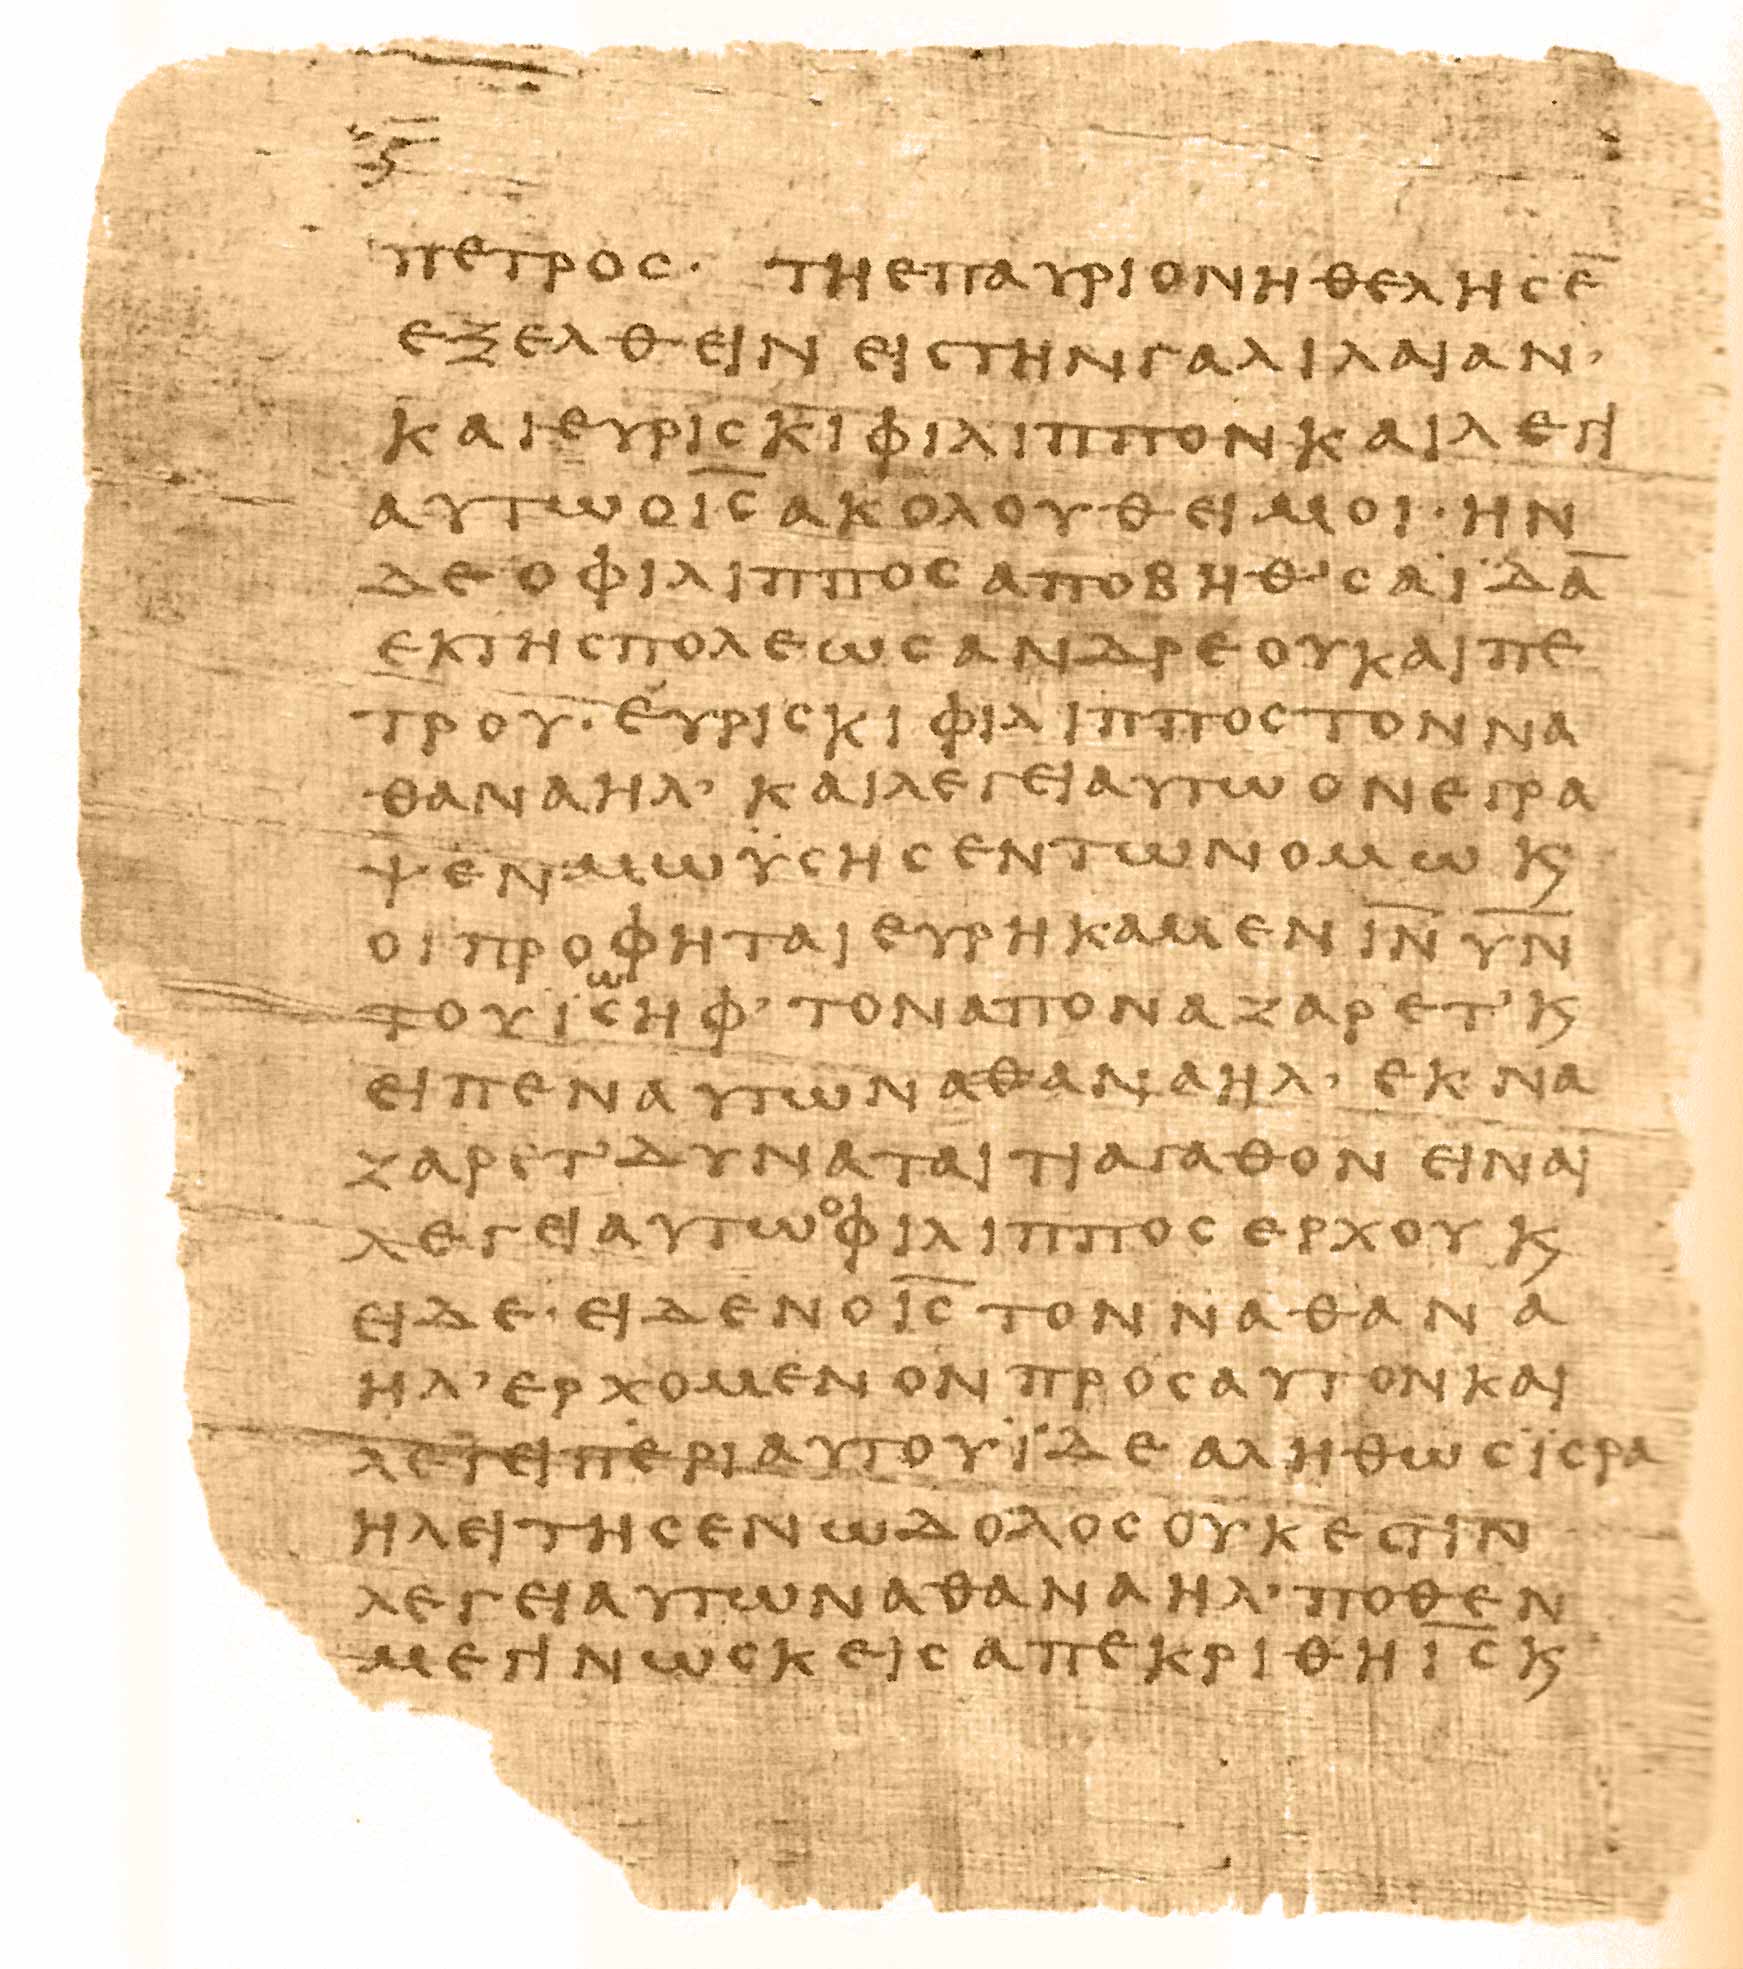 ϛ̅
πετρος· τη επαυριον ηθελησε̅
εξελθειν εις την γαλιλαιαν·
και ευρισκι φιλιππον και λεγι
αυτω ο ι̅ς̅ ακολουθει μοι· ην
δε ο φιλιππος απο βηθ’σαϊδα̅
εκ της πολεως ανδρεου και πε
τρου· ευρισκι φιλιππος τον να
θαναηλ’ και λεγει αυτω ον εγρα
ψεν μωϋσης εν τω νομω κ̣
οι προφηται ευρηκαμεν ι̅ν̅ υ̅ν̅
του ιωσηφ’ τον απο ναζαρετ’ κ̣
ειπεν αυτω ναθαναηλ’ εκ να
ζαρετ’ δυναται τι αγαθον ειναι
λεγει αυτω ο φιλιππος ερχου κ̣
ειδε· ειδεν ο ι̅ς̅ τον ναθανα
ηλ’ ερχομενον προς αυτον και
λεγει περι αυτου· ϊδε αληθως ϊσρα
ηλειτης εν ω δολος ουκ εστιν
λεγει αυτω ναθαναηλ’ ποθεν
με γινωσκεις απεκριθη ι̅ς̅ κ̣